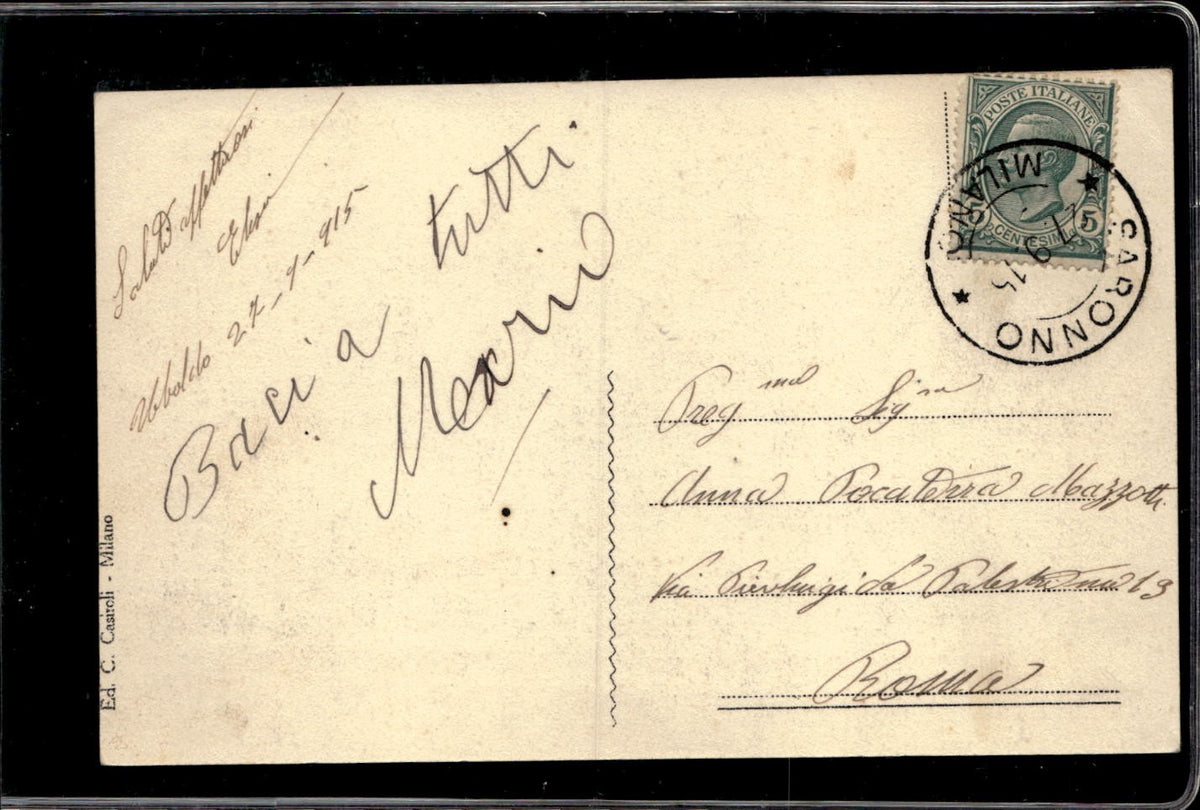 Saluti affettuosi
Uboldo 27-9-915
Baci a tutti
Mario
Ed. C. Casiroli - Milano
POSTE ITALIANE
5 CENTESIMI 5
CARONNO
MILANO
27.9.15
Preg ma Sig ra
Anna Mazzotti
Via Pierluigi da Palestrina 13
Roma